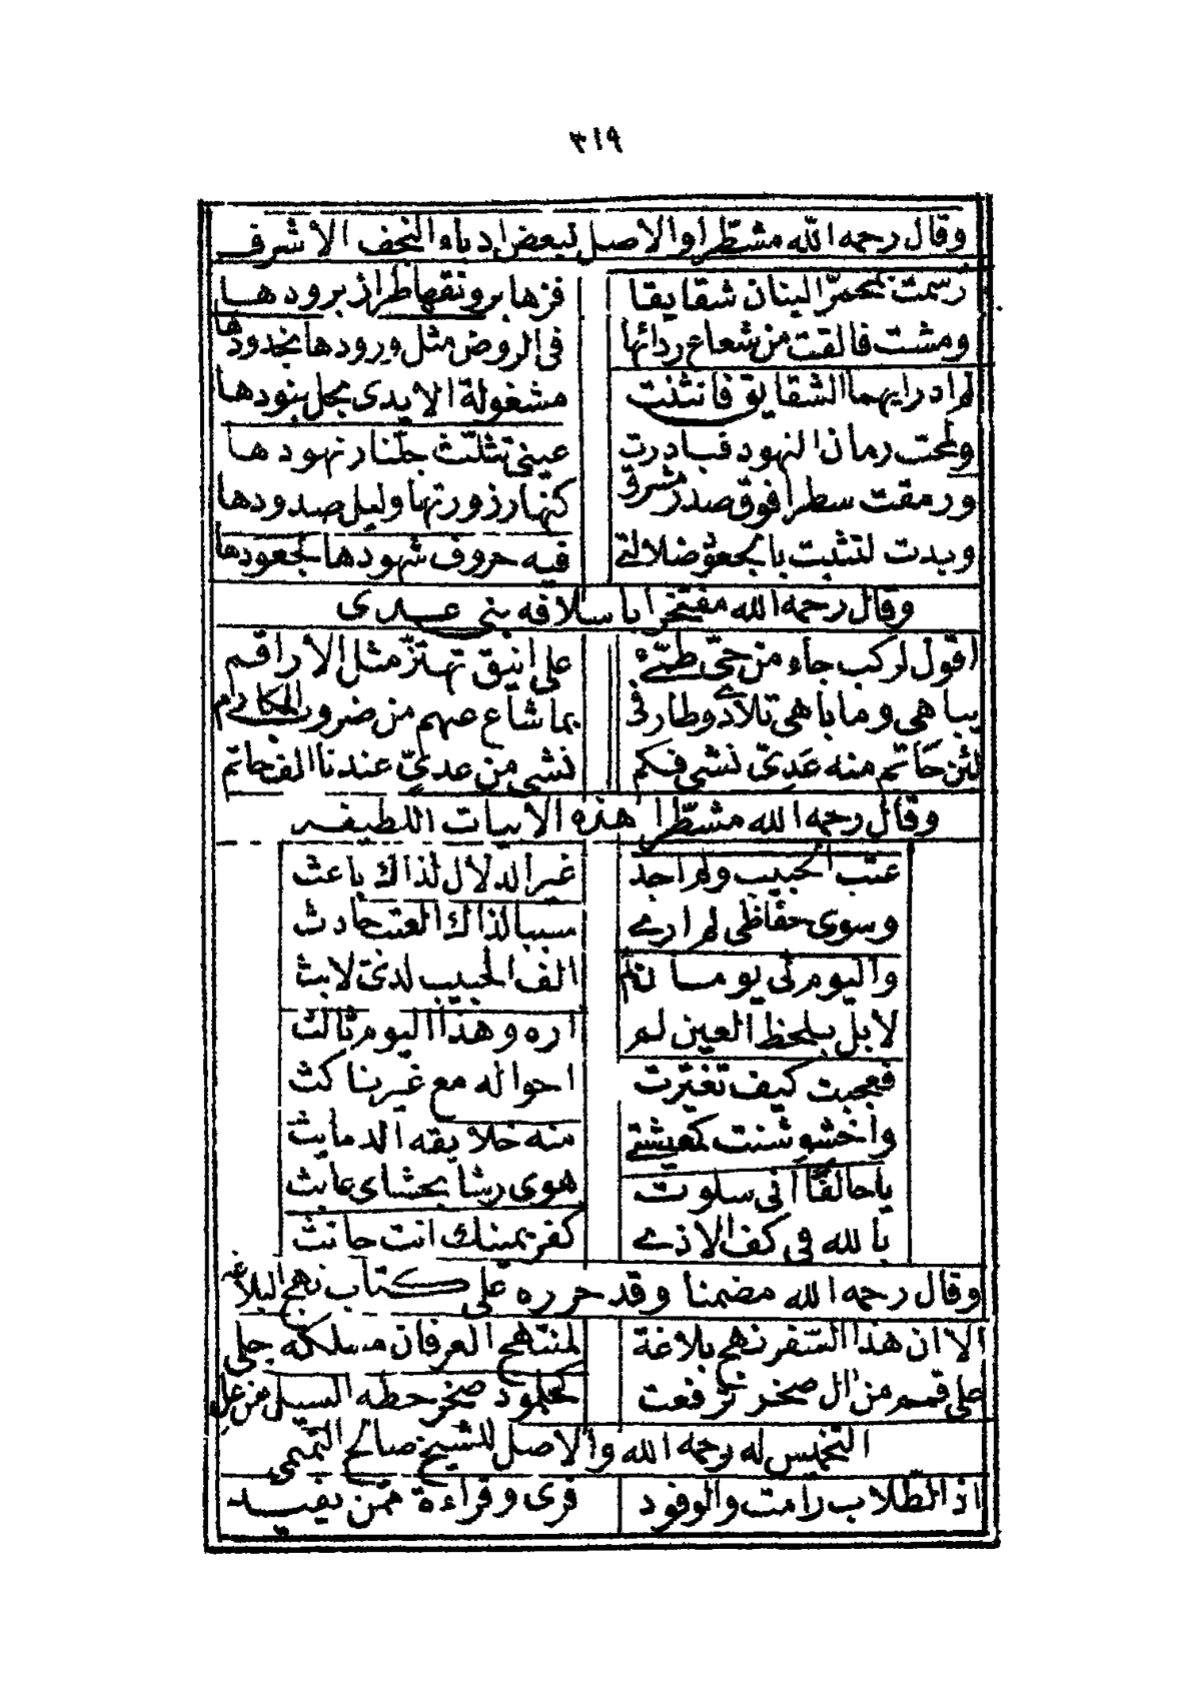 ٣١٩
وقال رحمه الله مشطّرا والاصل لبعض ادباء النجف الاشرف
رسمت بمحمرّ البنان شقايقا فزها برونقها طراز برودها
ومشت فالقت من شعاع ردائها في الروض مثل ورودها بخدودها
لم ادر ايهما الشقايق فانثنت مشغولة الايدي بحل بنودها
ولمحت رمان النهود فبادرت عيني تثلّث جلّنار نهودها
ورمقت سطرا فوق صدر مشرق كنهار زورتها وليل صدودها
وبدت لتثبت بالجعود ضلالتي فيه حروف شهودها لجعودها
وقال رحمه الله مفتخرا باسلافه بني عدي
اقول لركب جاء من حيّ طيّء على انيق تهتزّ مثل الاراقم
يباهي وما باهى تلادي وطارفي بما شاع عنهم من ضروب المكارم
لئن حاتم منه عَديّ نشى فكم نشى من عديّ عندنا الف حاتم
وقال رحمه الله مشطّرا هذه الابيات اللطيفه
عتب الحبيب ولم اجد غير الدلال لذاك باعث
وسوى حفاظي لم ار لي سببا لذاك العتب حادث
واليوم لي يومان لم الف الحبيب لديّ لابث
لا بل بلحظ العين لم اره وهذا اليوم ثالث
فعجبت كيف تغيّرت احواله مع غير ناكث
واخشوشنت لمعيشتي منه خلايقه الدمايث
يا حالفًا اني سلوت هوى رشا بحشاي عابث
بالله في كف الاذى كفر يمينك انت حانث
وقال رحمه الله مضمنا وقد حرره على كتاب نهج البلاغه
الا ان هذا السفر نهج بلاغة لمنتهج العرفان مسلكه جلي
على قمم من ال صخر ترفعت كجلمود صخر حطه السيل من عل
التخميس له رحمه الله والاصل للشيخ صالح التميمي
اذ الطّلاب رامت والوفود قرى وقراءة ممّن يفيد